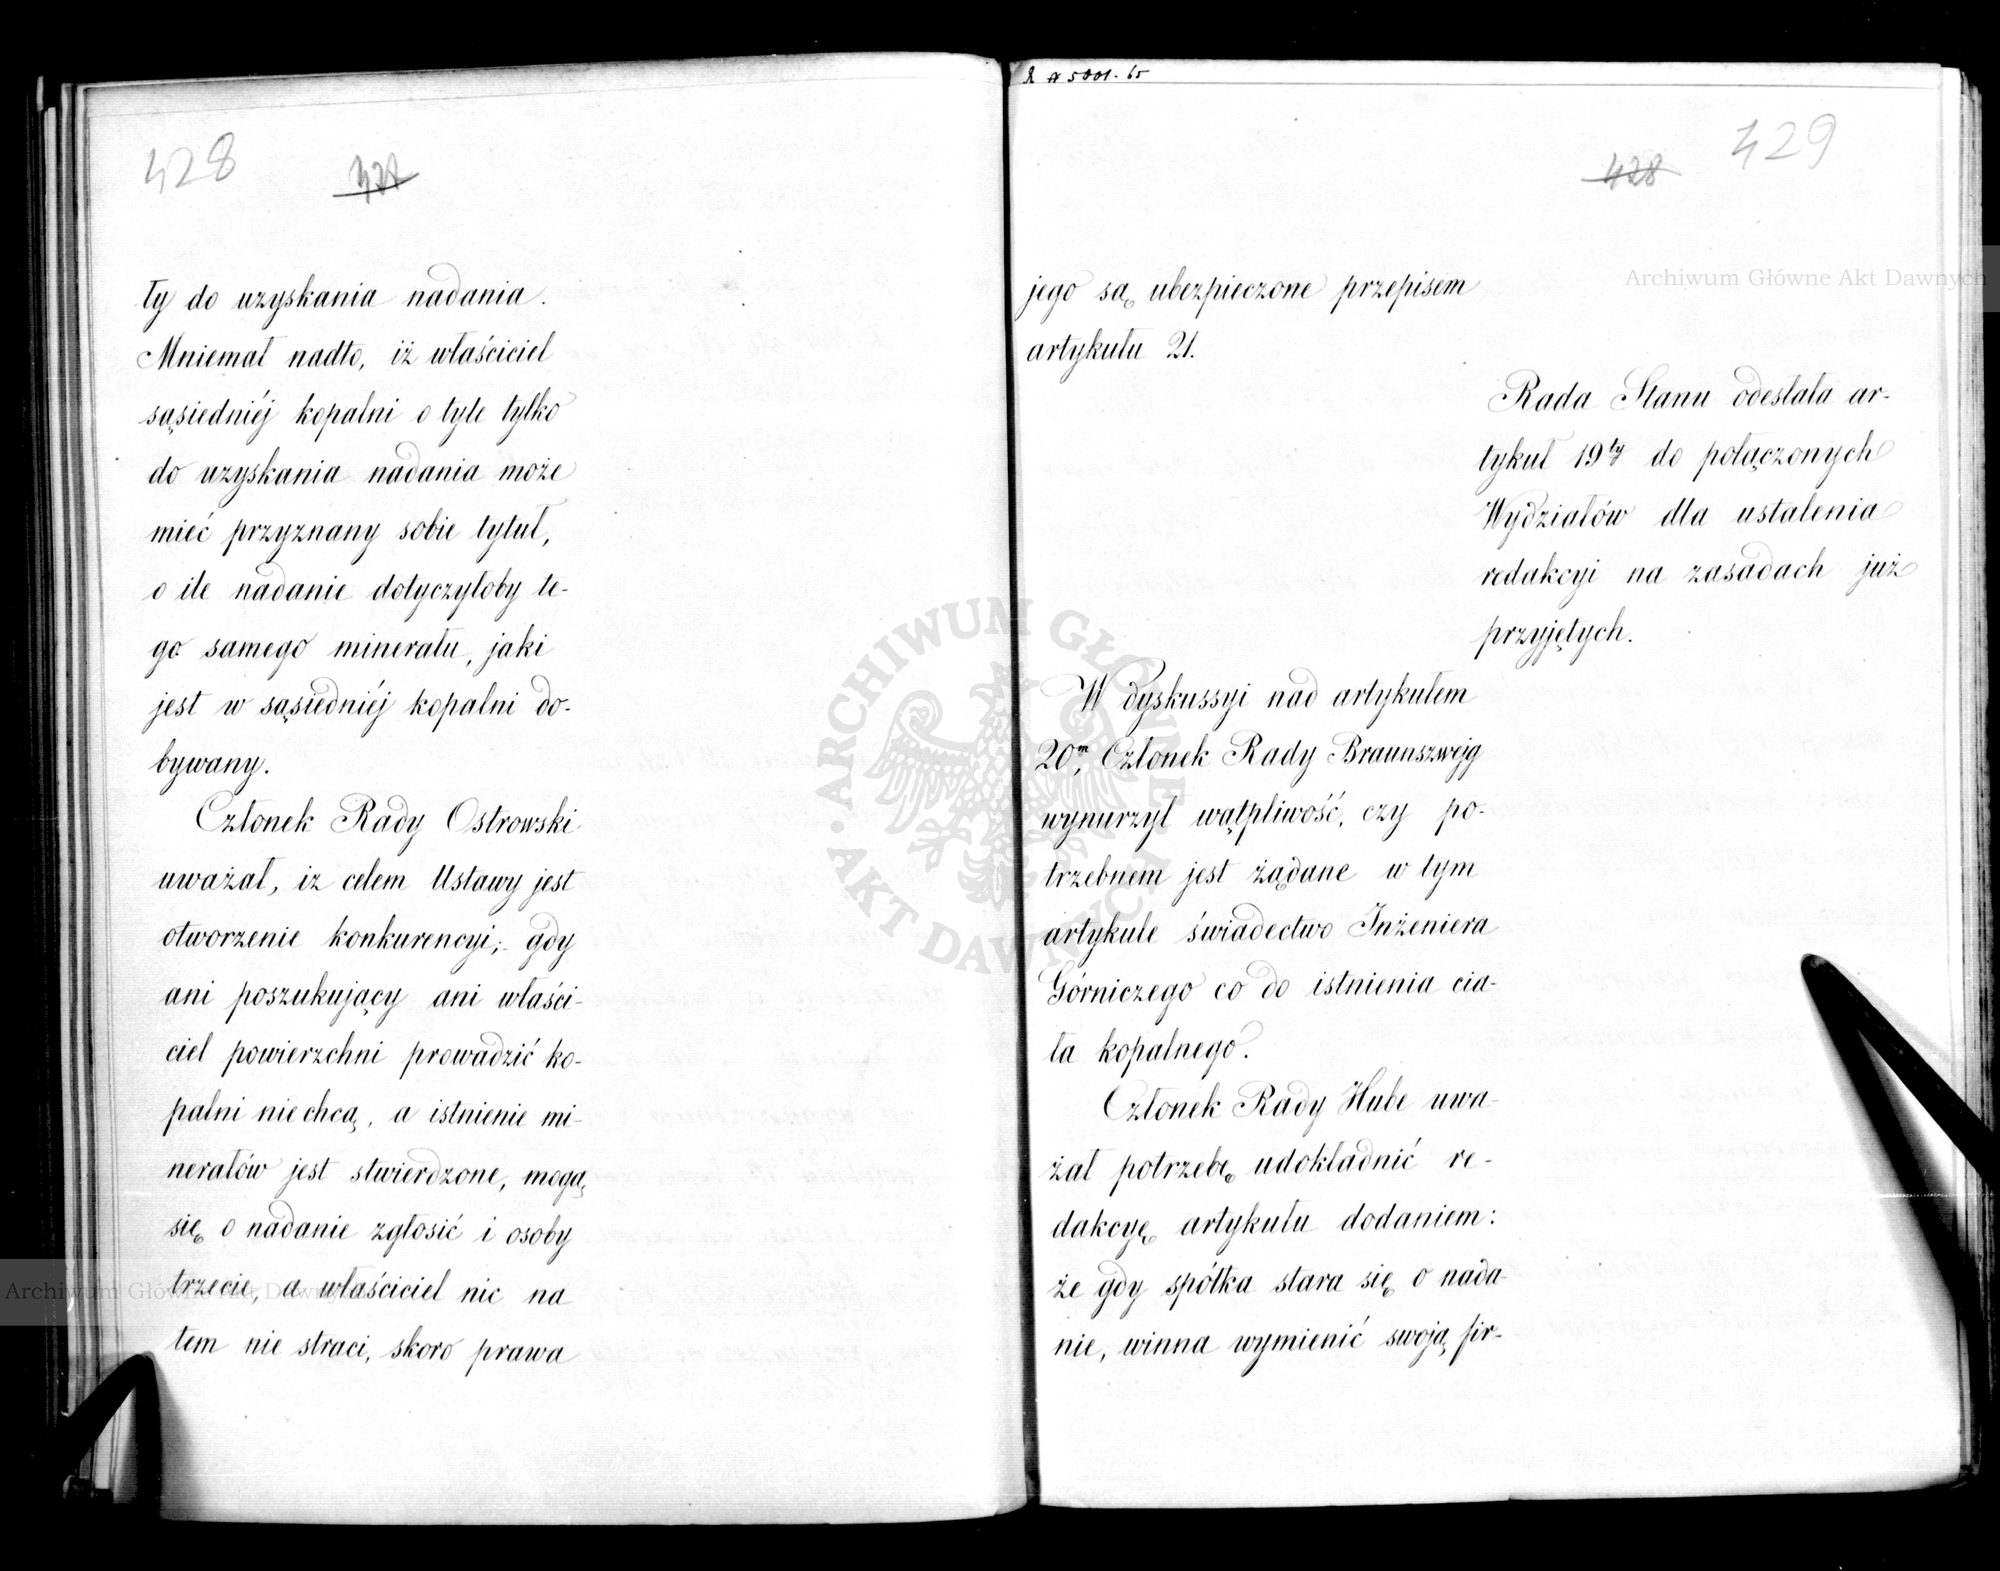 428
427
ły do uzyskania nadania.
Mniemał nadto, iż właściciel
sąsiedniéj kopalni o tyle tylko
do uzyskania nadania może
mieć przyznany sobie tytuł,
o ile nadanie dotyczyłoby te-
go samego minerału, jaki
jest w sąsiedniéj kopalni do-
bywany.
Członek Rady Ostrowski
uważał, iż celem Ustawy jest
otworzenie konkurencyi; gdy
ani poszukujący ani właści-
ciel powierzchni prowadzić ko-
palni nie chcą, a istnienie mi-
nerałów jest stwierdzone, mogą
się o nadanie zgłosić i osoby
trzecie, a właściciel nic na
tem nie straci, skoro prawa
428
429
jego są ubezpieczone przepisem
artykułu 21.
Rada Stanu odesłała ar-
tykuł 19ty do połączonych
Wydziałów dla ustalenia
redakcyi na zasadach już
przyjętych.
W dyskussyi nad artykułem
20m, Członek Rady Braunszwejg
wynurzył wątpliwość, czy po-
trzebnem jest żądane w tym
artykule świadectwo Inżeniera
Górniczego co do istnienia cia-
ła kopalnego.
Członek Rady Hube uwa-
żał potrzebę udokładnić re-
dakcyę artykułu dodaniem:
że gdy spółka stara się o nada-
nie, winna wymienić swoją fir-
Archiwum Główne Akt Dawnych
Archiwum Główne Akt Dawnych
ARCHIWUM GŁÓWNE AKT DAWNYCH